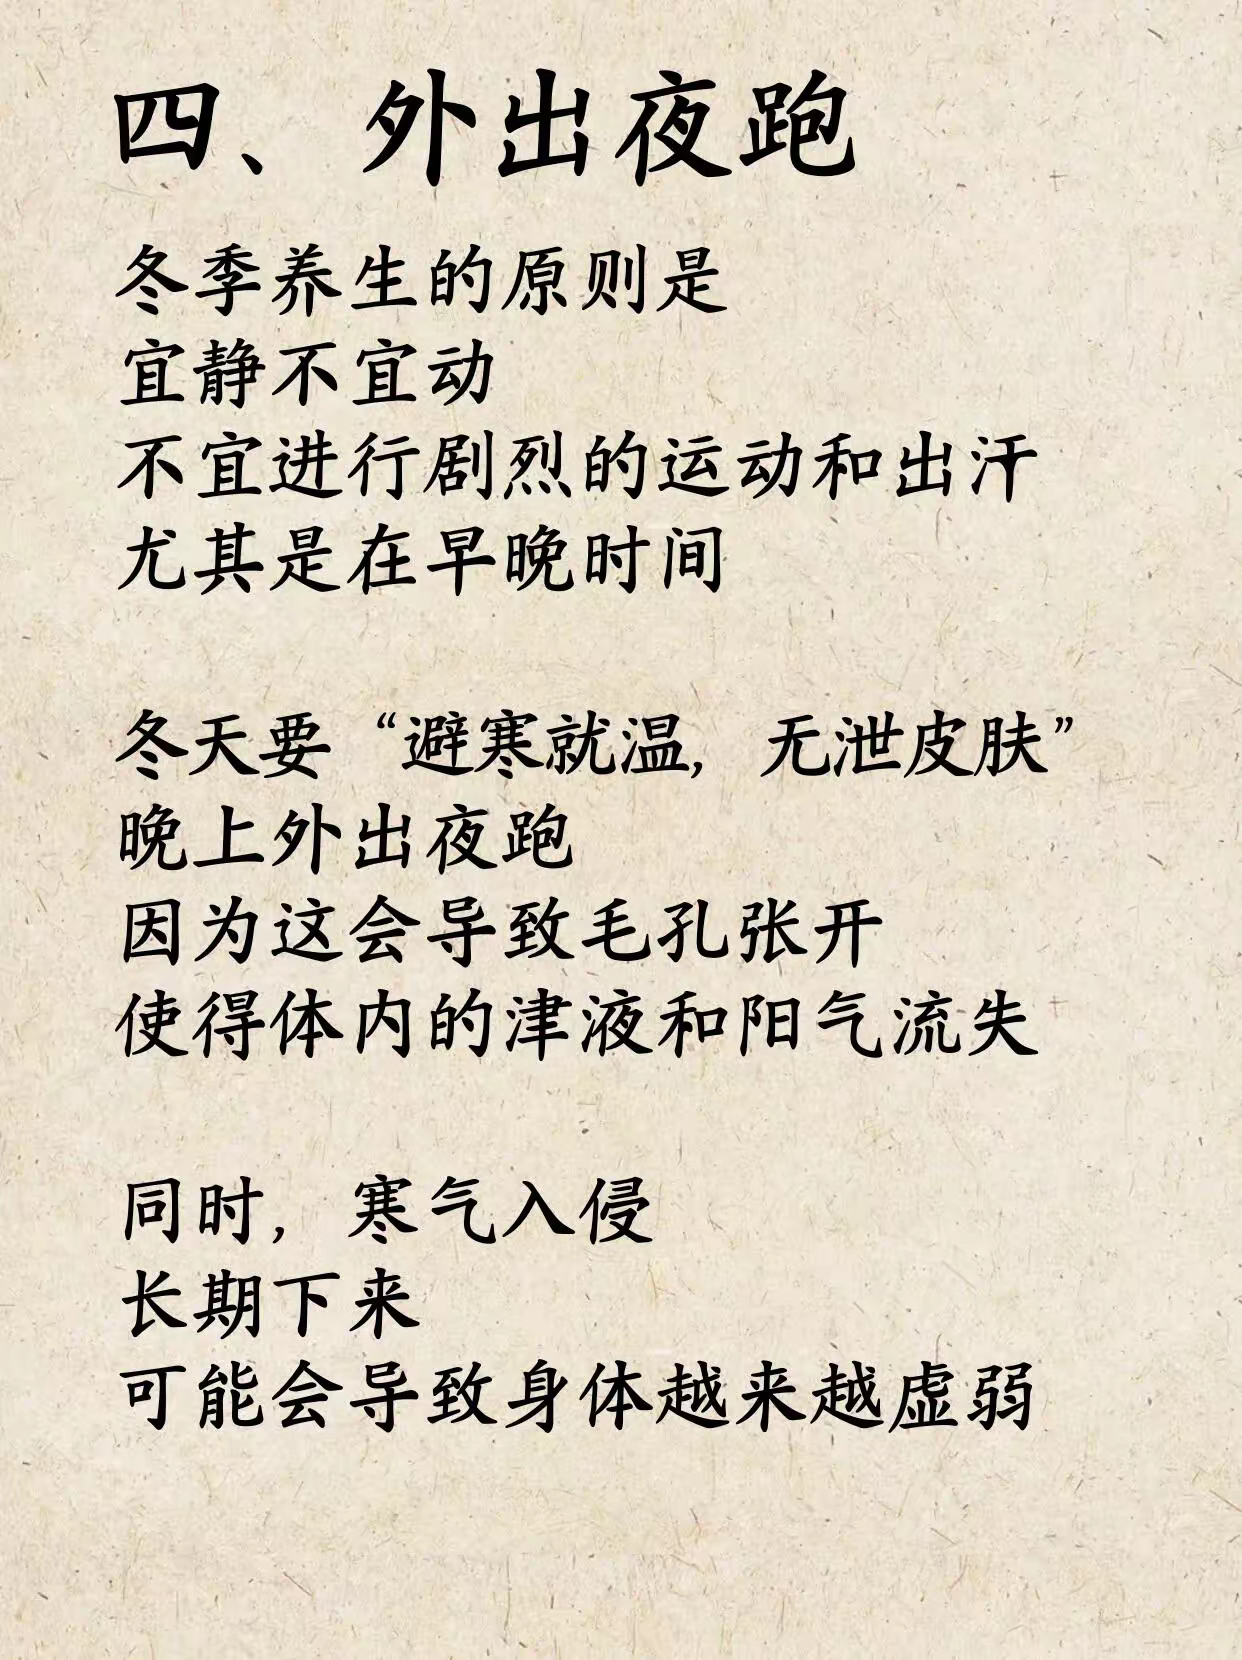 四、外出夜跑
冬季养生的原则是
宜静不宜动
不宜进行剧烈的运动和出汗
尤其是在早晚时间
冬天要“避寒就温，无泄皮肤”
晚上外出夜跑
因为这会导致毛孔张开
使得体内的津液和阳气流失
同时，寒气入侵
长期下来
可能会导致身体越来越虚弱